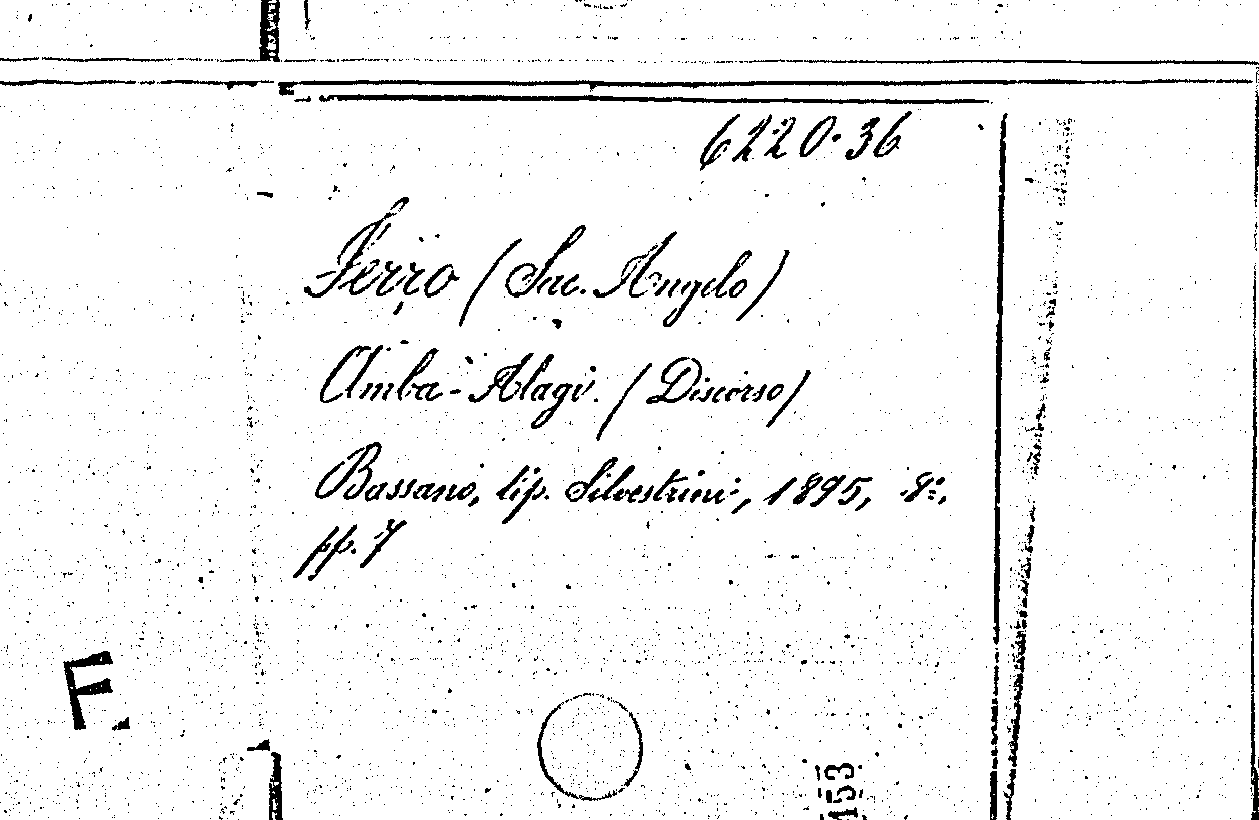 6220.36
Ferro (Sac. Angelo)
Amba-Alagi. (Discorso)
Bassano, tip. Silvestrini, 1895, 8º,
pp. 7
F.
153